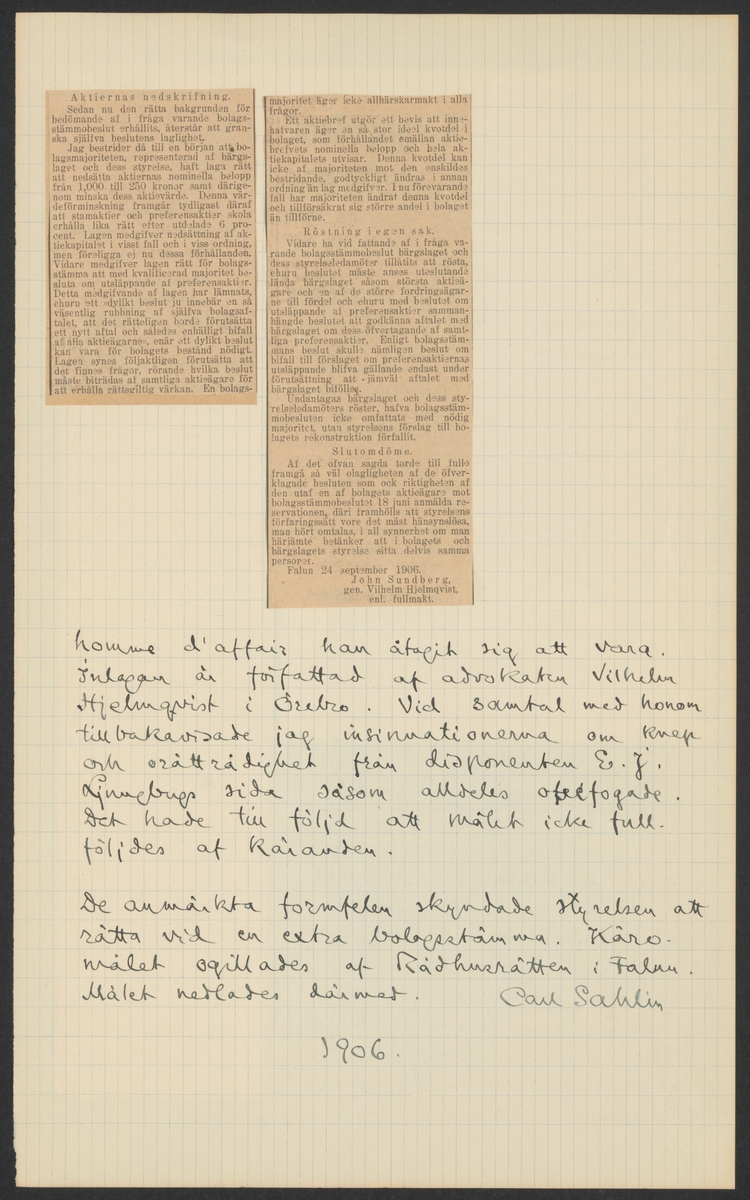 Aktiernas nedskrifning.
Sedan nu den rätta bakgrunden för
bedömande af i fråga varande bolags-
stämmobeslut erhållits, återstår att gran-
ska själfva beslutens laglighet.
Jag bestrider då till en början att bo-
lagsmajoriteten, representerad af bärgs-
laget och dess styrelse, haft laga rätt
att nedsätta aktiernas nominella belopp
från 1,000 till 250 kronor samt därige-
nom minska dess aktievärde. Denna vär-
deförminskning framgår tydligast däraf
att stamaktier och preferensaktier skola
erhålla lika rätt efter utdelade 6 pro-
cent. Lagen medgifver nedsättning af ak-
tiekapitalet i visst fall och i viss ordning,
men föreligga ej nu dessa förhållanden.
Vidare medgifver lagen rätt för bolags-
stämma att med kvalificerad majoritet be-
sluta om utsläppande af preferensaktier.
Detta medgifvande af lagen har lämnats,
ehuru ett dylikt beslut ju innebär en så
väsentlig rubbning af själfva bolagsaf-
talet, att det rätteligen borde förutsätta
ett nytt aftal och således enhälligt bifall
af alla aktieägarne, enär ett dylikt beslut
kan vara för bolagets bestånd nödigt.
Lagen synes följaktligen förutsätta att
det finnes frågor, rörande hvilka beslut
måste biträdas af samtliga aktieägare för
att erhålla rättsgiltig värkan. En bolags-
majoritet äger icke allhärskarmakt i alla
frågor.
Ett aktiebref utgör ett bevis att inne-
hafvaren äger en så stor ideel kvotdel i
bolaget, som förhållandet emällan aktie-
brefvets nominella belopp och hela ak-
tiekapitalets utvisar. Denna kvotdel kan
icke af majoriteten mot den enskildes
bestridande, godtyckligt ändras i annan
ordning än lag medgifver. I nu förevarande
fall har majoriteten ändrat denna kvotdel
och tillförsäkrat sig större andel i bolaget
än tillförne.
Röstning i egen sak.
Vidare ha vid fattande af i fråga va-
rande bolagsstämmobeslut bärgslaget och
dess styrelseledamöter tillåtits att rösta,
ehuru beslutet måste anses uteslutande
lända bärgslaget såsom största aktieä-
gare och en af de större fordringsägar-
ne till fördel och ehuru med beslutet om
utsläppande af preferensaktier samman-
hängde beslutet att godkänna aftalet med
bärgslaget om dess öfvertagande af samt-
liga preferensaktier. Enligt bolagsstäm-
mans beslut skulle nämligen beslut om
bifall till förslaget om preferensaktiernas
utsläppande blifva gällande endast under
förutsättning att jämväl aftalet med
bärgslaget bifölles.
Undantagas bärgslaget och dess sty-
relseledamöters röster, hafva bolagsstäm-
mobesluten icke omfattats med nödig
majoritet, utan styrelsens förslag till bo-
lagets rekonstruktion förfallit.
Slutomdöme.
Af det ofvan sagda torde till fullo
framgå så väl olagligheten af de öfver-
klagade besluten som ock riktigheten af
den utaf en af bolagets aktieägare mot
bolagsstämmobeslutet 18 juni anmälda re-
servationen, däri framhölls att styrelsens
förfaringssätt vore det mäst hänsynslösa,
man hört omtalas, i all synnerhet om man
härjämte betänker att i bolagets och
bärgslagets styrelse sitta delvis samma
personer.
Falun 24 september 1906.
John Sundberg,
gen. Vilhelm Hjelmqvist,
enl. fullmakt.
homme d'affair han åtagit sig att vara.
Inlagan är författad af advokaten Vilhelm
Hjelmqvist i Örebro. Vid samtal med honom
tillbakavisade jag insinuationerna om knep
och orättrådighet från disponenten E. J.
Ljungbergs sida såsom alldeles obefogade.
Det hade till följd att målet icke full-
följdes af käranden.
De anmärkta formfelen skyndade styrelsen att
rätta vid en extra bolagsstämma. Käro-
målet ogillades af Rådhusrätten i Falun.
Målet nedlades därmed. Carl Sahlin
1906.